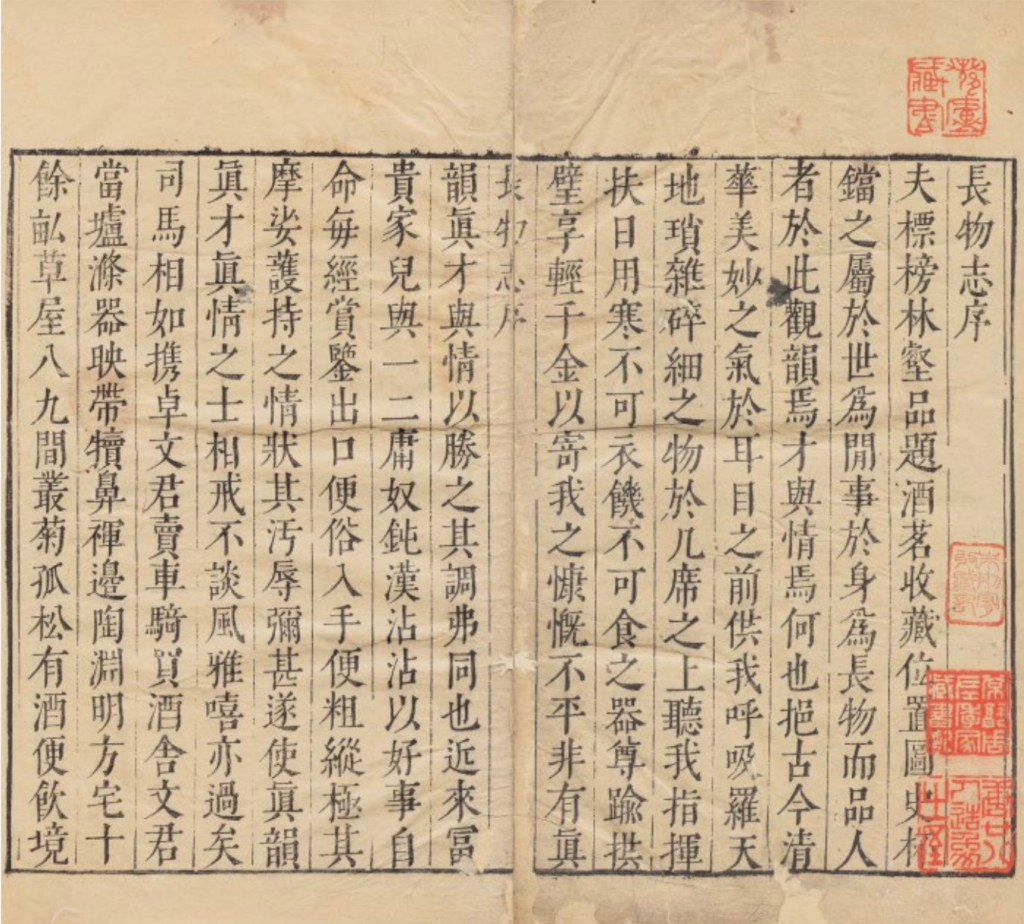 長物志序
夫標榜林壑品題酒茗收藏位置圖史杯
鐺之屬於世爲閒事於身爲長物而品人
者於此觀韻焉才與情焉何也挹古今清
華美妙之氣於耳目之前供我呼吸羅天
地瑣雜碎細之物於几席之上聽我指揮
扶日用寒不可衣饑不可食之器尊踰拱
璧享輕千金以寄我之慷慨不平非有眞
長物志序
韻眞才與情以勝之其調弗同也近來富
貴家兒與一二庸奴鈍漢沾沾以好事自
命每經賞鑒出口便俗入手便粗縱極其
摩娑護持之情狀其汚辱彌甚遂使眞韻
眞才眞情之士相戒不談風雅嘻亦過矣
司馬相如携卓文君賣車騎買酒舍文君
當壚滌器映帶犢鼻褌邊陶淵明方宅十
餘畝草屋八九間叢菊孤松有酒便飲境